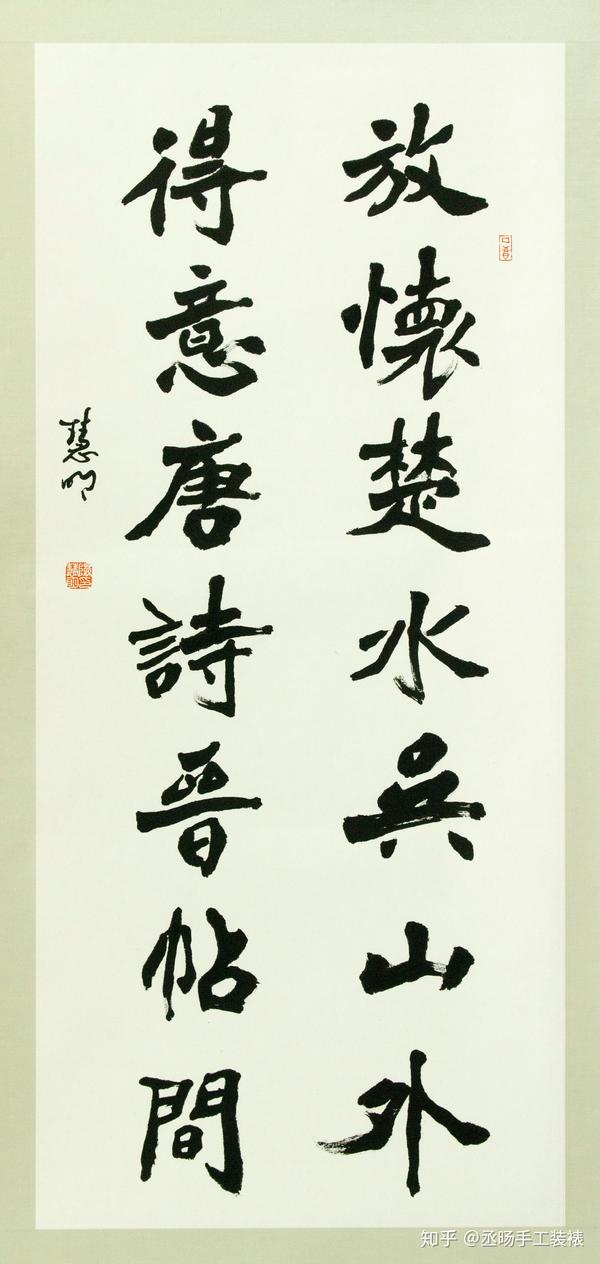 放懷楚水吳山外
得意唐詩晉帖間
慧明
知乎 @丞旸手工装裱